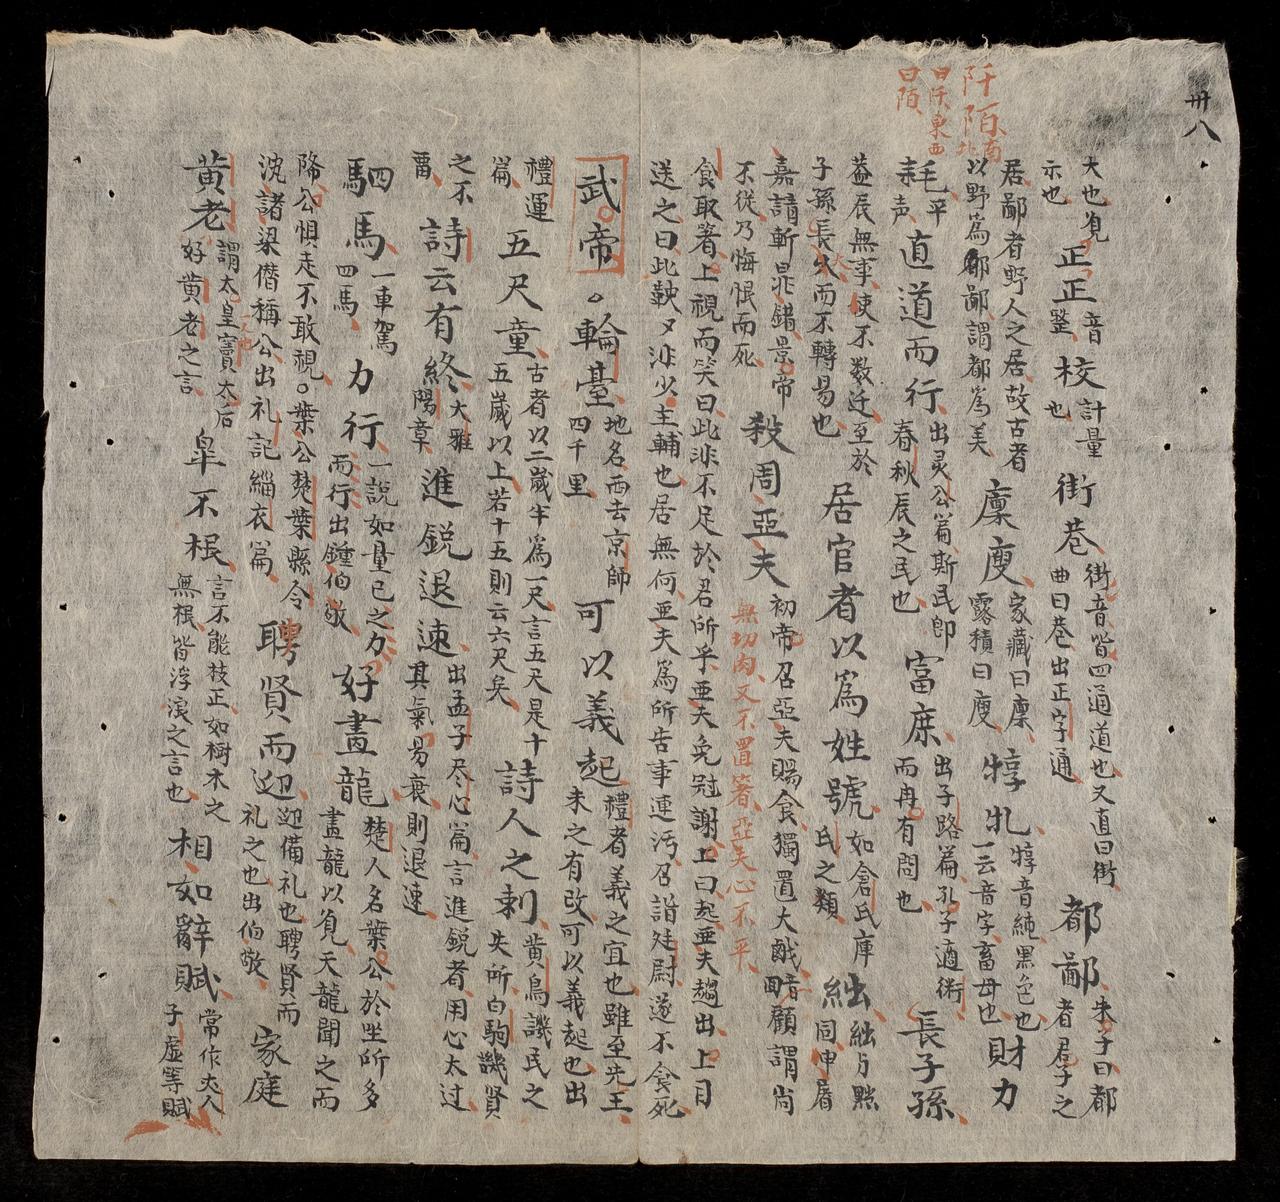 卅八
阡陌南北
曰阡東西
曰陌
大也見
示也
正正音
整
校計量
也
街巷街音皆四通道也又直曰街
曲曰巷出正字通
都鄙朱子曰都
者君子之
居鄙者野人之居故古者
以野為鄙鄙謂都為美
廩庾家藏曰廩
露積曰庾
犉牝犉音純黑色也
一云音字畜母也
財力
耗平
声
直道而行出灵公篇斯民即
春秋辰之民也
富庶出子路篇孔子適衛
而冉有問也
長子孫
蓋辰無事使不数迁至於
子孫長大而不轉易也
居官者以為姓號如倉氏庫
氏之類
絀絀与黜
同申屠
嘉請斬晁錯景帝
不從乃悔恨而死
殺周亞夫初帝召亞夫賜食獨置大胾
無切肉又不置箸亞夫心不平
顧謂尚
食取箸上視而笑曰此非不足於君所乎亜夫免冠謝上曰起亜夫趨出上目
送之曰此鞅鞅非少主輔也居無何亜夫為所告事連污召詣廷尉遂不食死
武帝
輪臺地名西去京師
四千里
可以義起禮者義之宜也雖至先王
未之有改可以義起也出
禮運
篇
五尺童古者以二歲半為一尺言五尺是十
五歲以上若十五則云六尺矣
詩人之刺黄鳥譏民之
失所白駒譏賢
之不
畱
詩云有終大雅
陽章
進銳退速出孟子尽心篇言進銳者用心太过
其氣易衰則退速
駟馬一車駕
四馬
力行一說如量己之力
而行出鍾伯敬
好畫龍楚人名葉公於坐所多
畫龍以見天龍聞之而
降公惧走不敢視葉公楚葉縣令
沈諸梁僭稱公出礼記緇衣篇
聘賢而迎迎備礼也聘賢而
礼之也出伯敬
家庭
黄老謂太皇竇太后
好黄老之言
皐不根言不能枝正如樹木之
無根皆浮濱之言也
相如辭賦常作大人
子虚等賦